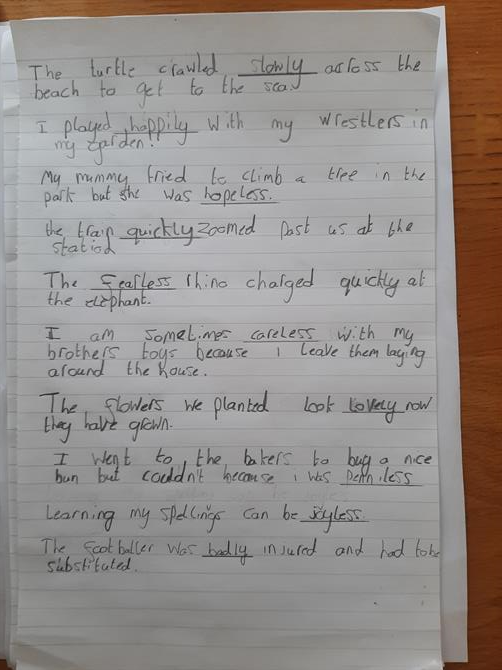 The turtle crawled slowly across the
beach to get to the sea
I played happily with my wrestlers in
my garden.
My mummy tried to climb a tree in the
park but she was hopeless.
the train quickly zoomed past us at the
station
The fearless rhino charged quickly at
the elephant.
I am sometimes careless with my
brothers toys because i leave them laying
around the house.
The flowers we planted look lovely now
they have grown.
I went to the bakers to buy a nice
bun but couldn't because i was penniless
Learning my spellings can be joyless.
The footballer was badly injured and had to be
substituted.